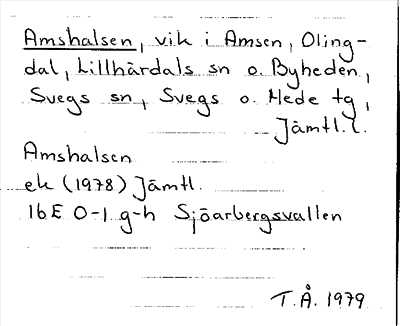 Amshalsen, vik i Amsen, Oling-
dal, Lillhärdals sn o. Byheden,
Svegs sn, Svegs o. Hede tg,
Jämtl. l.
Amshalsen
ek (1978) Jämtl.
16E 0-1 g-h Sjöarbergsvallen
T.Å. 1979